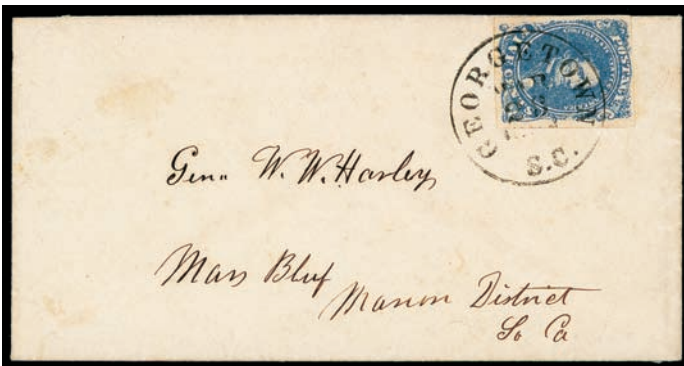 GEORGETOWN
S.C.
POSTAGE
Genn W. W. Harley
Mars Bluf
Marion District
So Ca